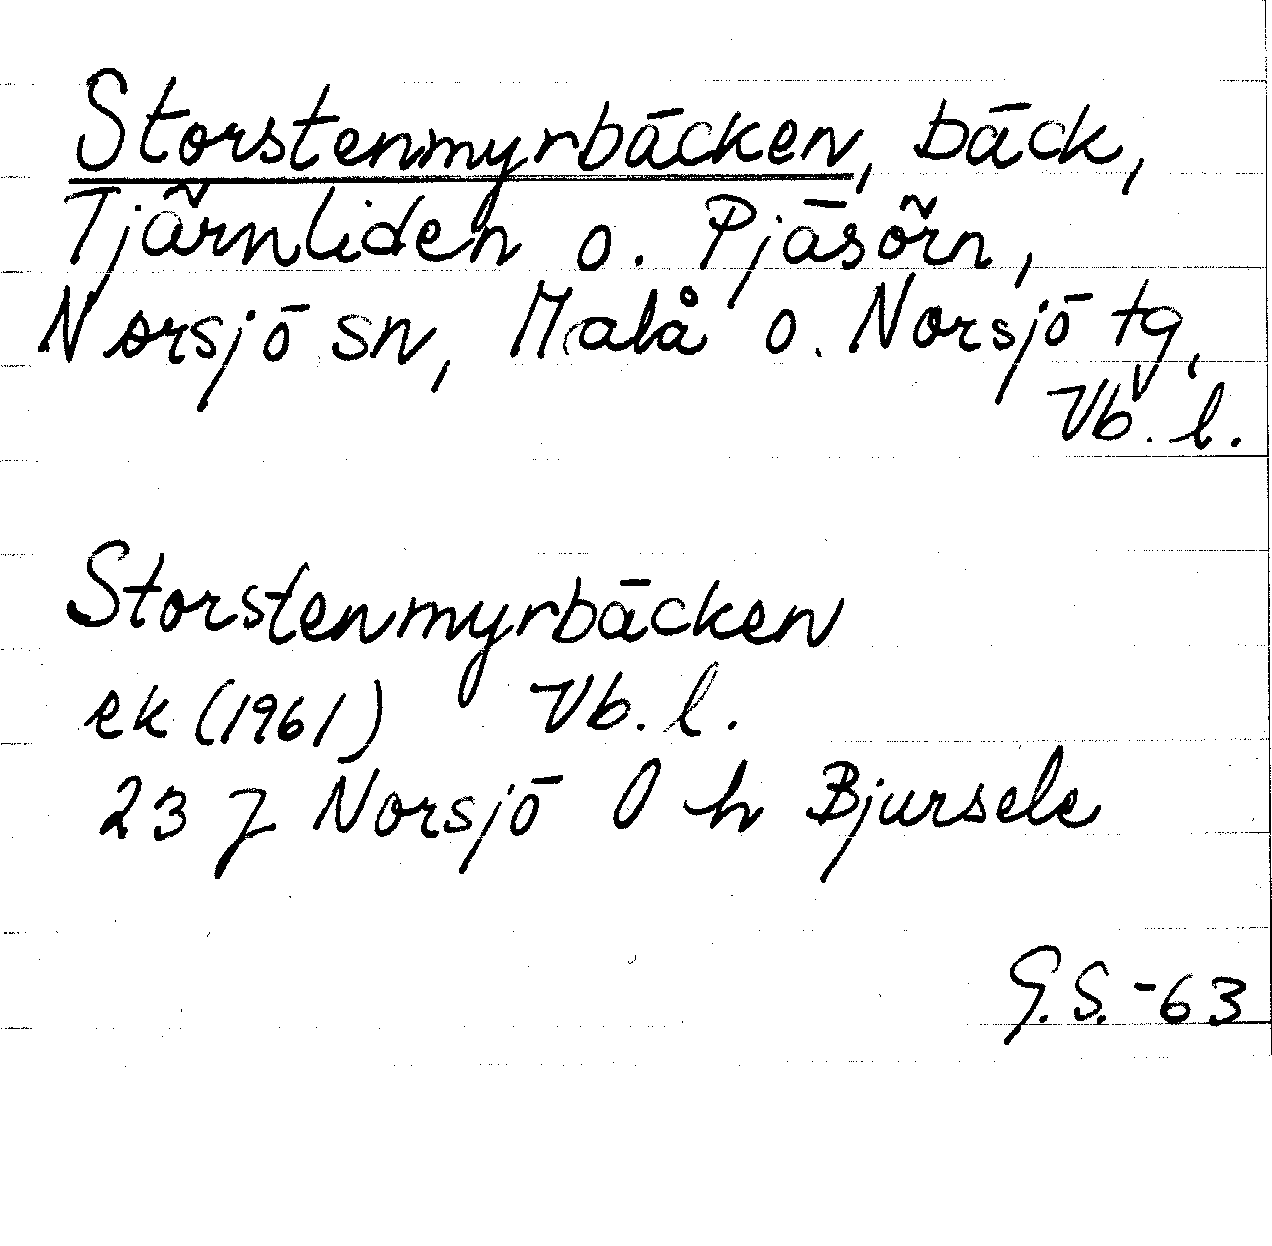 Storstenmyrbäcken, bäck,
Tjärnliden o. Pjäsörn,
Norsjö sn, Malå o. Norsjö tg,
Vb. l.
Storstenmyrbäcken
ek (1961) Vb. l.
23 J Norsjö O h Bjursele
G.S.-63